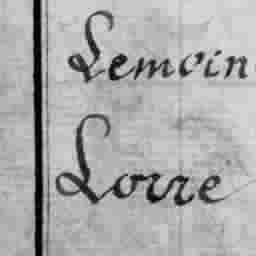 Lemoin
Lorre